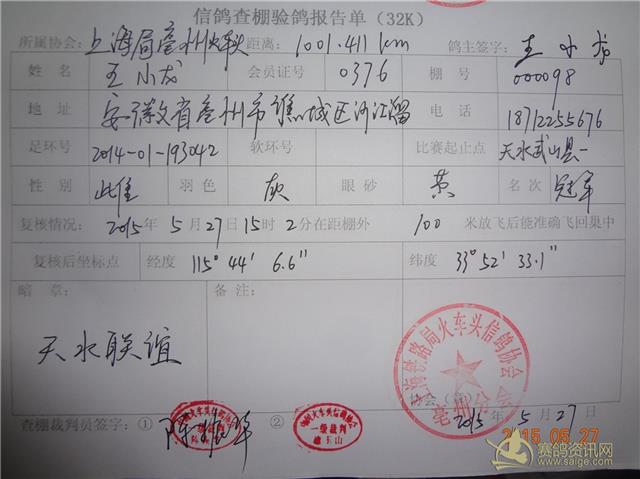 信鸽查棚验鸽报告单（32K）
所属协会：上海局亳州火车头 距离：1001.411 km 鸽主签字：王小龙
姓 名 王小龙 会员证号 0376 棚 号 000098
地 址 安徽省亳州市谯城区 电 话 18712255676
足环号 2014-01-193042 软环号 比赛起止点 天水武山县一
性 别 雌 羽色 灰 眼 砂 黄 名次 冠军
复核情况： 2015 年 5 月 27 日 15 时 2 分在距棚外 100 米放飞后能准确飞回巢中
复核后坐标点 经度 115° 44' 6.6" 纬度 33° 52' 33.1"
暗 章： 备注：
天水联谊
上海铁路局火车头信鸽协会
亳州分会
协会（章
2015 年 5 月 27 日
查棚裁判员签字：① ②
一级裁判
2015.05.27
赛鸽资讯网
www.saige.com